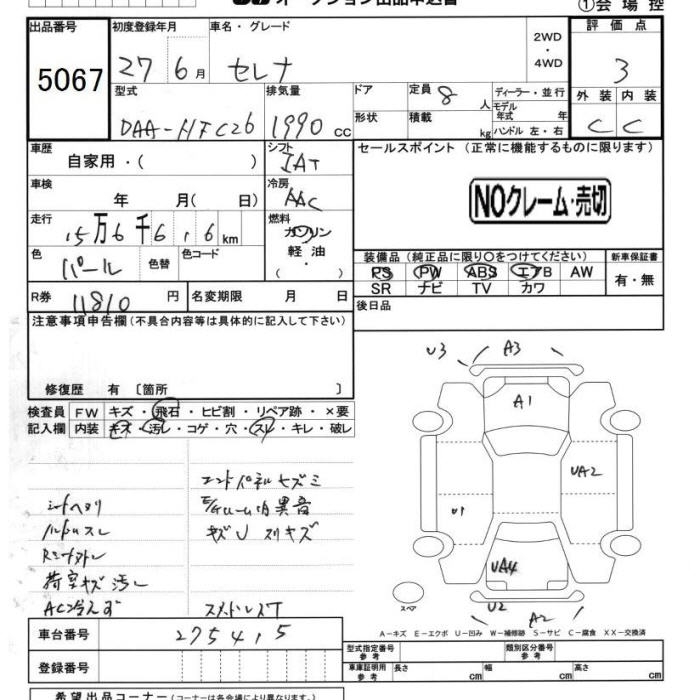 オークション出品申込書
①会場控
出品番号 5067
初度登録年月 27年6月
車名・グレード セレナ
2WD・4WD
評価点 3
型式 DAA-HFC26
排気量 1990 cc
ドア 形状
定員 8人
積載 kg
ディーラー・並行
モデル年式 年
ハンドル 左・右
外装 C 内装 C
車歴 自家用・( )
シフト IAT
セールスポイント (正常に機能するものに限ります)
NOクレーム・売切
車検 年 月( 日)
冷房 AAC
走行 15万6千6 km
燃料 ガソリン 軽油 ( )
色 パール 色替 色コード
装備品 (純正品に限り〇をつけてください)
新車保証書
PS PW ABS エアB AW
SR ナビ TV カワ
有・無
R券 11810円
名変期限 月 日
後日品
注意事項申告欄(不具合内容等は具体的に記入して下さい)
修復歴 有 〔箇所 〕
検査員記入欄
FW キズ・飛石・ヒビ割・リペア跡・×要
内装 キズ・汚レ・コゲ・穴・スレ・キレ・破レ
シートヘタリ
ハンドルスレ
荷室キズ汚レ
AC冷えず
エンドパネルキズミ
異音
キズU スリキズ
U3 A3
A1
UA2
U1
UA4
U2 A2
スペア
A-キズ E-エクボ U-凹み W-補修跡 S-サビ C-腐食 XX-交換済
車台番号 275415
登録番号
型式指定番号 参考
類別区分番号 参考
車庫証明用 参考
長さ cm 幅 cm 高さ cm
希望出品コーナー(コーナーは各会場により異なります。)